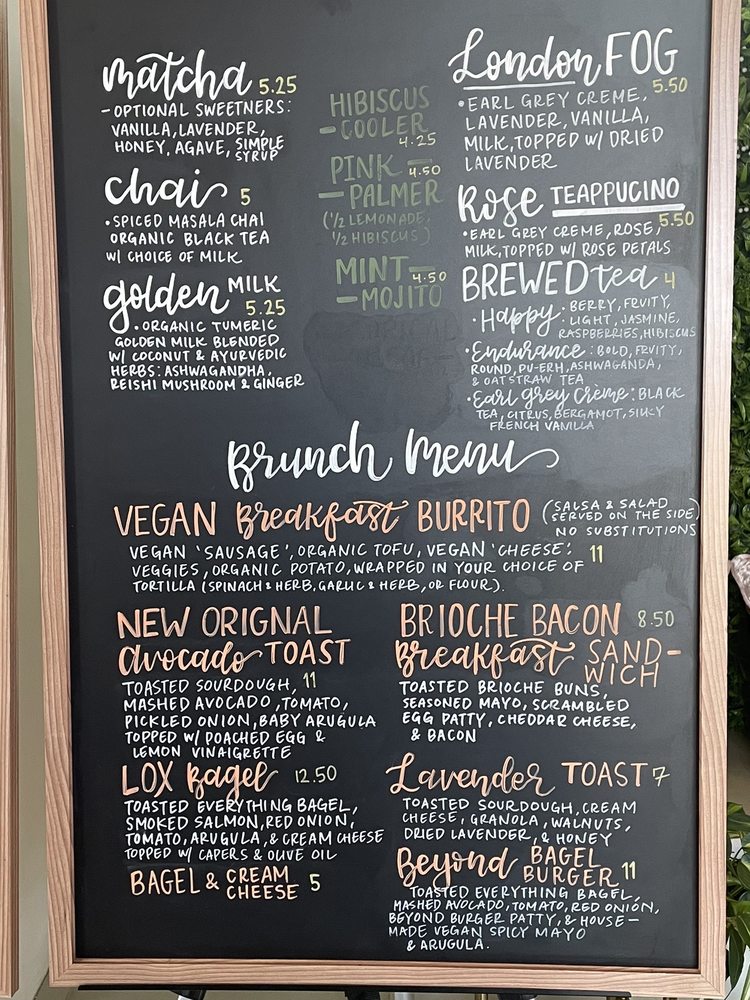 matcha 5.25
- OPTIONAL SWEETNERS:
VANILLA, LAVENDER,
HONEY, AGAVE, SIMPLE
SYRUP
chai 5
• SPICED MASALA CHAI
ORGANIC BLACK TEA
W/ CHOICE OF MILK
golden MILK
5.25
• ORGANIC TUMERIC
GOLDEN MILK BLENDED
W/ COCONUT & AYURVEDIC
HERBS: ASHWAGANDHA,
REISHI MUSHROOM & GINGER
HIBISCUS
- COOLER
4.25
PINK - 4.50
- PALMER
(1/2 LEMONADE,
1/2 HIBISCUS)
MINT - 4.50
- MOJITO
London FOG
5.50
• EARL GREY CREME,
LAVENDER, VANILLA,
MILK, TOPPED W/ DRIED
LAVENDER
Rose TEAPPUCINO
5.50
• EARL GREY CREME, ROSE,
MILK, TOPPED W/ ROSE PETALS
BREWED tea 4
• Happy: BERRY, FRUITY,
LIGHT, JASMINE,
RASPBERRIES, HIBISCUS
• Endurance: BOLD, FRUITY,
ROUND, PU-ERH, ASHWAGANDA,
& OATSTRAW TEA
• Earl grey Crème: BLACK
TEA, CITRUS, BERGAMOT, SILKY
FRENCH VANILLA
Brunch Menu
VEGAN Breakfast BURRITO (SALSA & SALAD
SERVED ON THE SIDE)
NO SUBSTITUTIONS
VEGAN 'SAUSAGE', ORGANIC TOFU, VEGAN 'CHEESE', 11
VEGGIES, ORGANIC POTATO, WRAPPED IN YOUR CHOICE OF
TORTILLA (SPINACH & HERB, GARLIC & HERB, OR FLOUR).
NEW ORIGNAL
Avocado TOAST
TOASTED SOURDOUGH, 11
MASHED AVOCADO, TOMATO,
PICKLED ONION, BABY ARUGULA
TOPPED W/ POACHED EGG &
LEMON VINAIGRETTE
LOX Bagel 12.50
TOASTED EVERYTHING BAGEL,
SMOKED SALMON, RED ONION,
TOMATO, ARUGULA, & CREAM CHEESE
TOPPED W/ CAPERS & OLIVE OIL
BAGEL & CREAM
CHEESE 5
BRIOCHE BACON 8.50
Breakfast SAND-
WICH
TOASTED BRIOCHE BUNS,
SEASONED MAYO, SCRAMBLED
EGG PATTY, CHEDDAR CHEESE,
& BACON
Lavender TOAST 7
TOASTED SOURDOUGH, CREAM
CHEESE, GRANOLA, WALNUTS,
DRIED LAVENDER, & HONEY
Beyond BAGEL
BURGER 11
TOASTED EVERYTHING BAGEL,
MASHED AVOCADO, TOMATO, RED ONION,
BEYOND BURGER PATTY, & HOUSE-
MADE VEGAN SPICY MAYO
& ARUGULA.